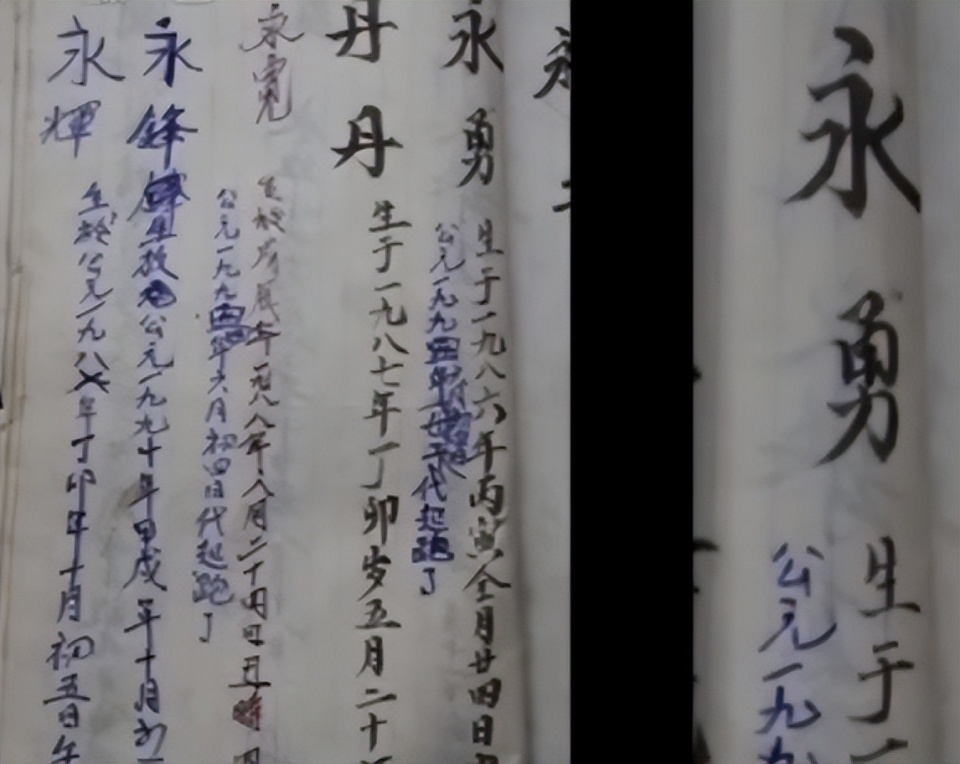 永
永勇
生于一九八六年丙寅全月廿四日
公元一九九四年
代起跑了
丹丹
生于一九八七年丁卯岁五月二十
永寛
生於戊辰年一九八八年八月二十四日丑時
公元一九九四年六月初四日代起跑了
永鋒
生於公元一九九十年甲戌年十月初一
永輝
生於公元一九八年丁卯年十月初五日午
永
勇
生于一
公元一九九